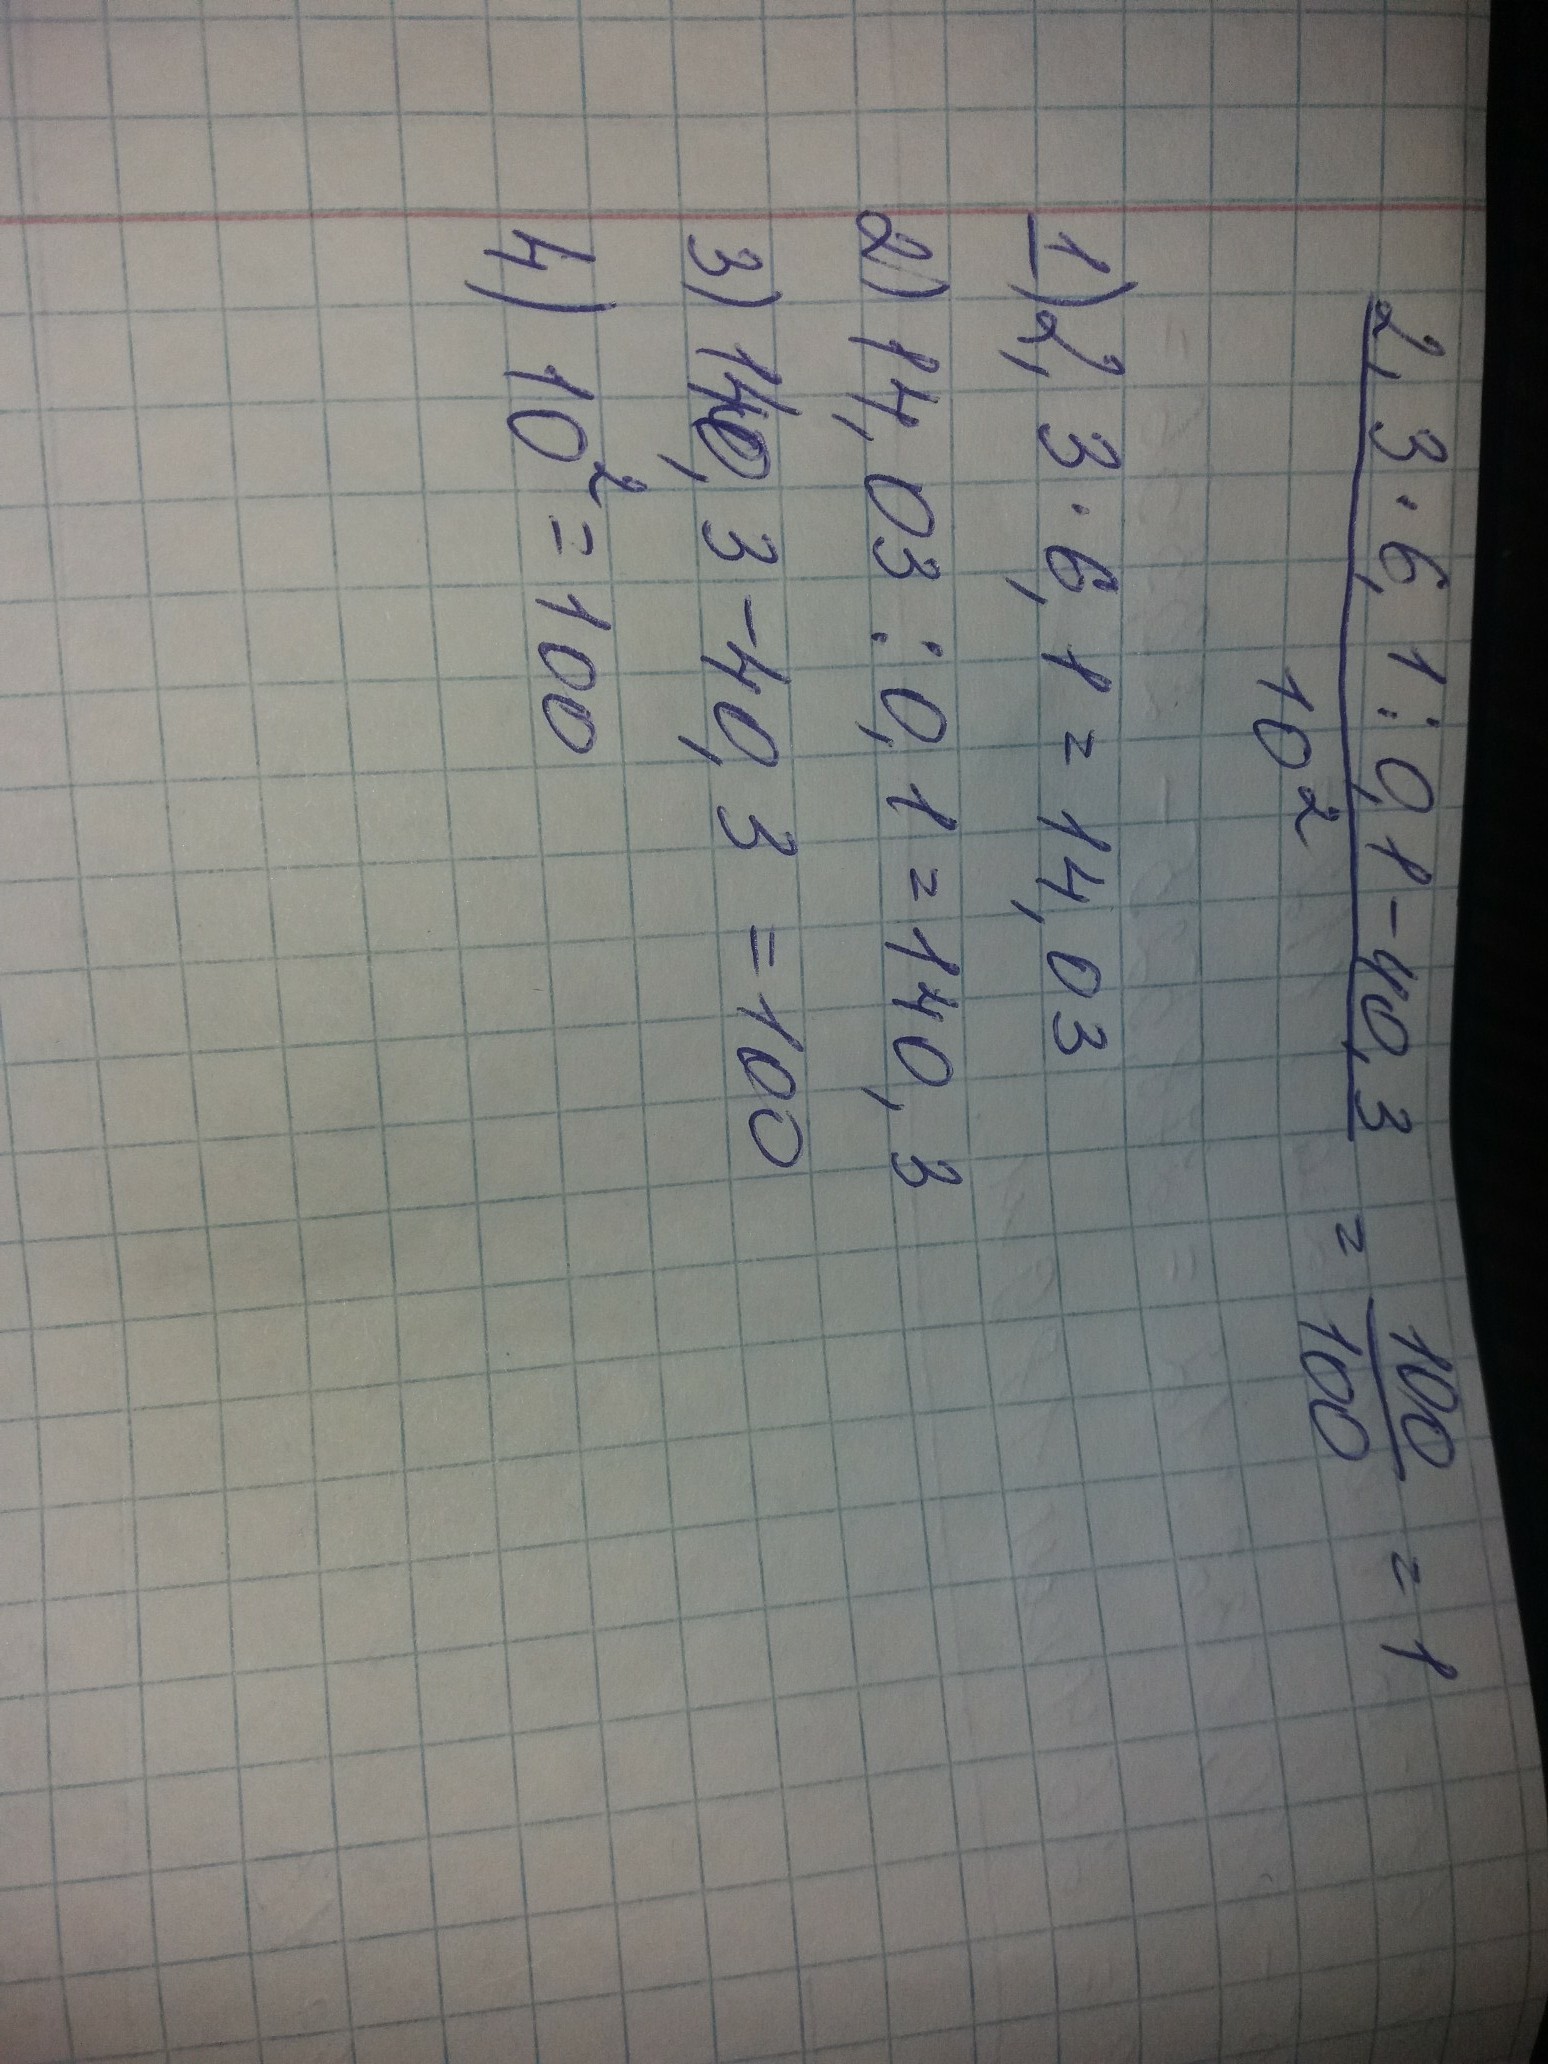 2,3·6,1:0,1-40,3 = 100 = 1
10² 100
1) 2,3·6,1=14,03
2) 14,03:0,1=140,3
3) 140,3-40,3=100
4) 10²=100